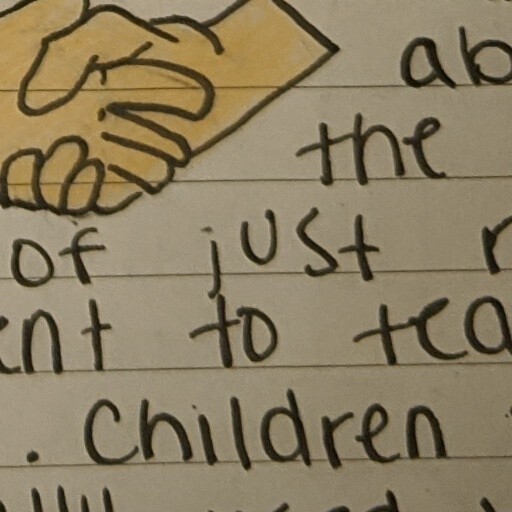 ab
the
of just r
nt to tea
. Children